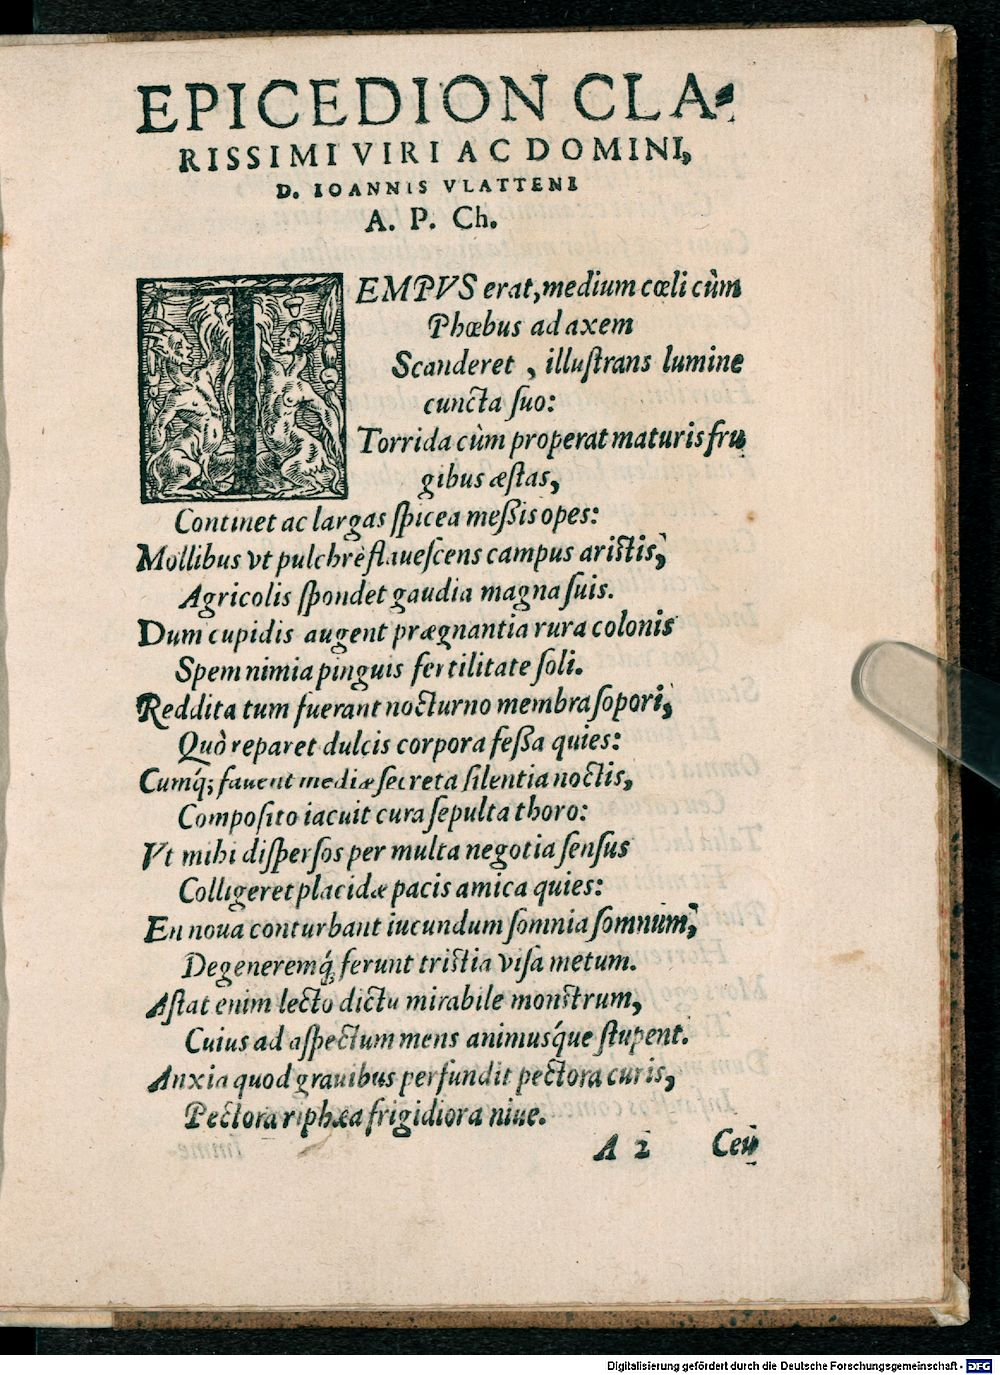 EPICEDION CLA-
RISSIMI VIRI AC DOMINI,
D. IOANNIS VLATTENI
A. P. Ch.
TEMPVS erat, medium cœli cùm
Phœbus ad axem
Scanderet, illuſtrans lumine
cuncta ſuo:
Torrida cùm properat maturis fru-
gibus æſtas,
Continet ac largas ſpicea meßis opes:
Mollibus vt pulchrè flaueſcens campus ariſtis,
Agricolis ſpondet gaudia magna ſuis.
Dum cupidis augent prægnantia rura colonis
Spem nimia pinguis fertilitate ſoli.
Reddita tum fuerant nocturno membra ſopori,
Quò reparet dulcis corpora feßa quies:
Cumq́; fauent mediæ ſecreta ſilentia noctis,
Compoſito iacuit cura ſepulta thoro:
Vt mihi diſperſos per multa negotia ſenſus
Colligeret placidæ pacis amica quies:
En noua conturbant iucundum ſomnia ſomnum,
Degeneremq́; ferunt triſtia viſa metum.
Aſtat enim lecto dictu mirabile monſtrum,
Cuius ad aſpectum mens animusq́ue ſtupent.
Anxia quod grauibus perfundit pectora curis,
Pectora riphæa frigidiora niue.
A 2 Ceu
Digitalisierung gefördert durch die Deutsche Forschungsgemeinschaft - DFG